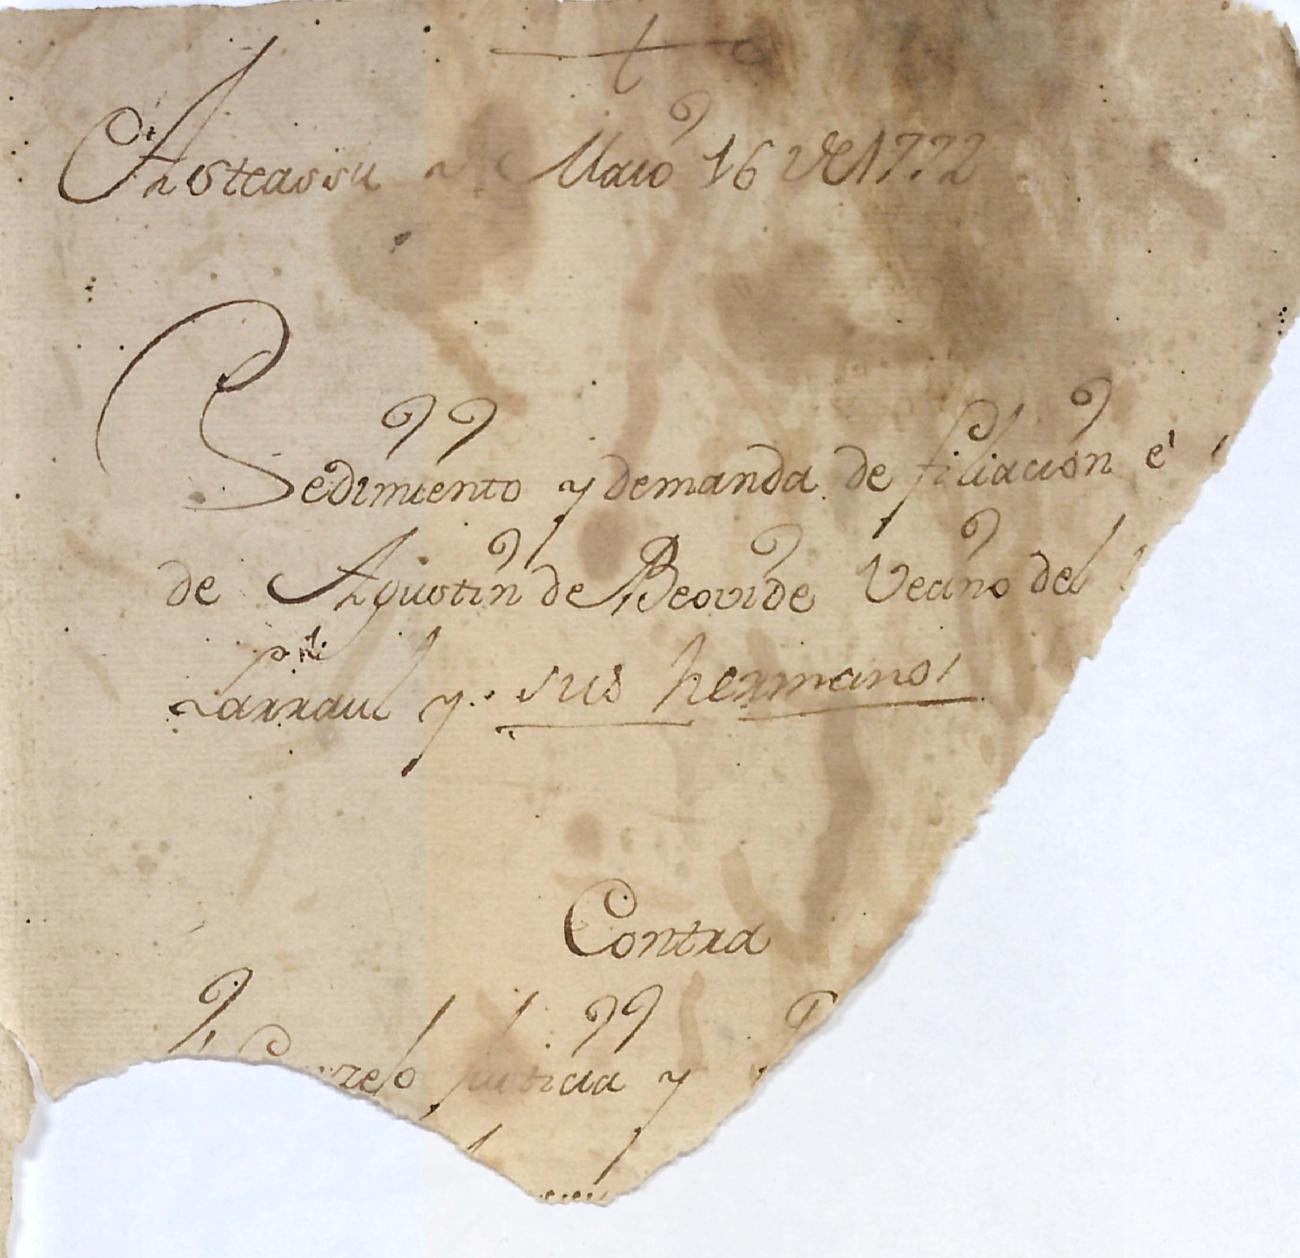 Asteassu y Maio 16 de 1772
Pedimiento y demanda de filiación é
de Agustin de Beovide Vecino del
Larraul y sus hermanos
Contra
Justicia y